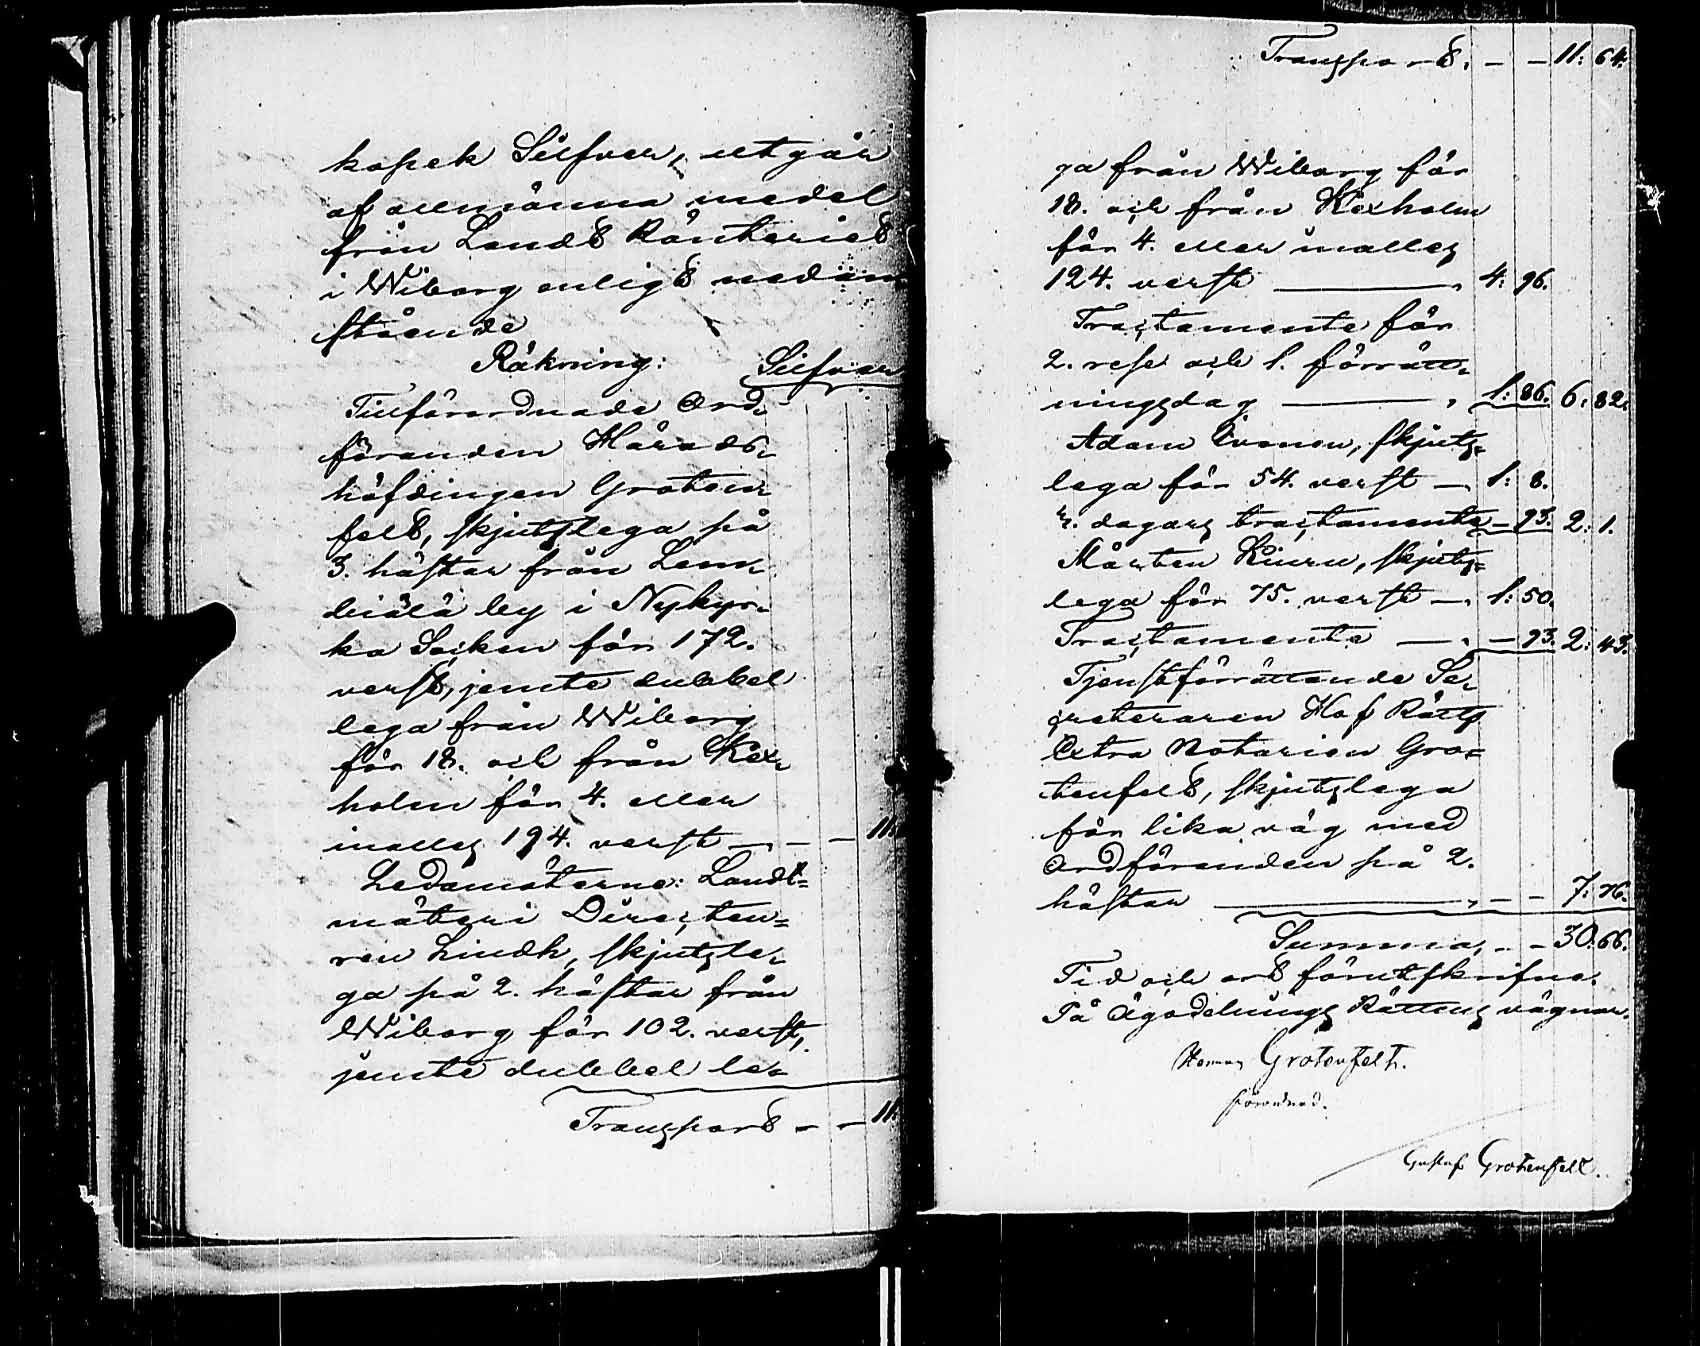 kopek Silfver, utgår
af allmänna medel
från Lands Ränteriet
i Wiborg enligt nedan
stående
Räkning: Silfver
Tillförordnade Ord-
föranden Härads-
höfdingen Groten-
felt, skjutslega på
3. hästar från
by i Nykyr-
ka Socken för 172.
verst, jemte dubbel
lega från Wiborg
för 18. och från Kex-
holm för 4. eller
inalles 194. verst — — 11:
Ledamöterne: Landt-
mäteri Directeu-
ren Lindh, skjutsle-
ga på 2. hästar från
Wiborg för 102. verst,
jemte dubbel le-
Transport — — 11:
Transport. — — 11: 64.
ga från Wiborg för
18. och från Kexholm
för 4. eller inalles
124. verst — 4: 96.
Tractamente för
2. rese och 1. förrätt-
ningsdag — 1: 86. 6: 82.
Adam Ivonen, skjuts-
lega för 54. verst — 1: 8.
3. dagars tractamente — 93. 2: 1.
Mårten Kiuru, skjuts-
lega för 75. verst — 1: 50.
Tractamente — — 93. 2: 43.
Tjenstförrättande Se-
creteraren Hof Rätts
Extra Notarien Gro-
tenfelt, skjutslega
för lika väg med
Ordföranden på 2.
hästar — — — 7: 76.
Summa, — — 30: 66.
Tid och ort förutskrifne.
På Ägodelnings Rättens vägnar.
Herman Grotenfelt.
förordnad.
Gustaf Grotenfelt.